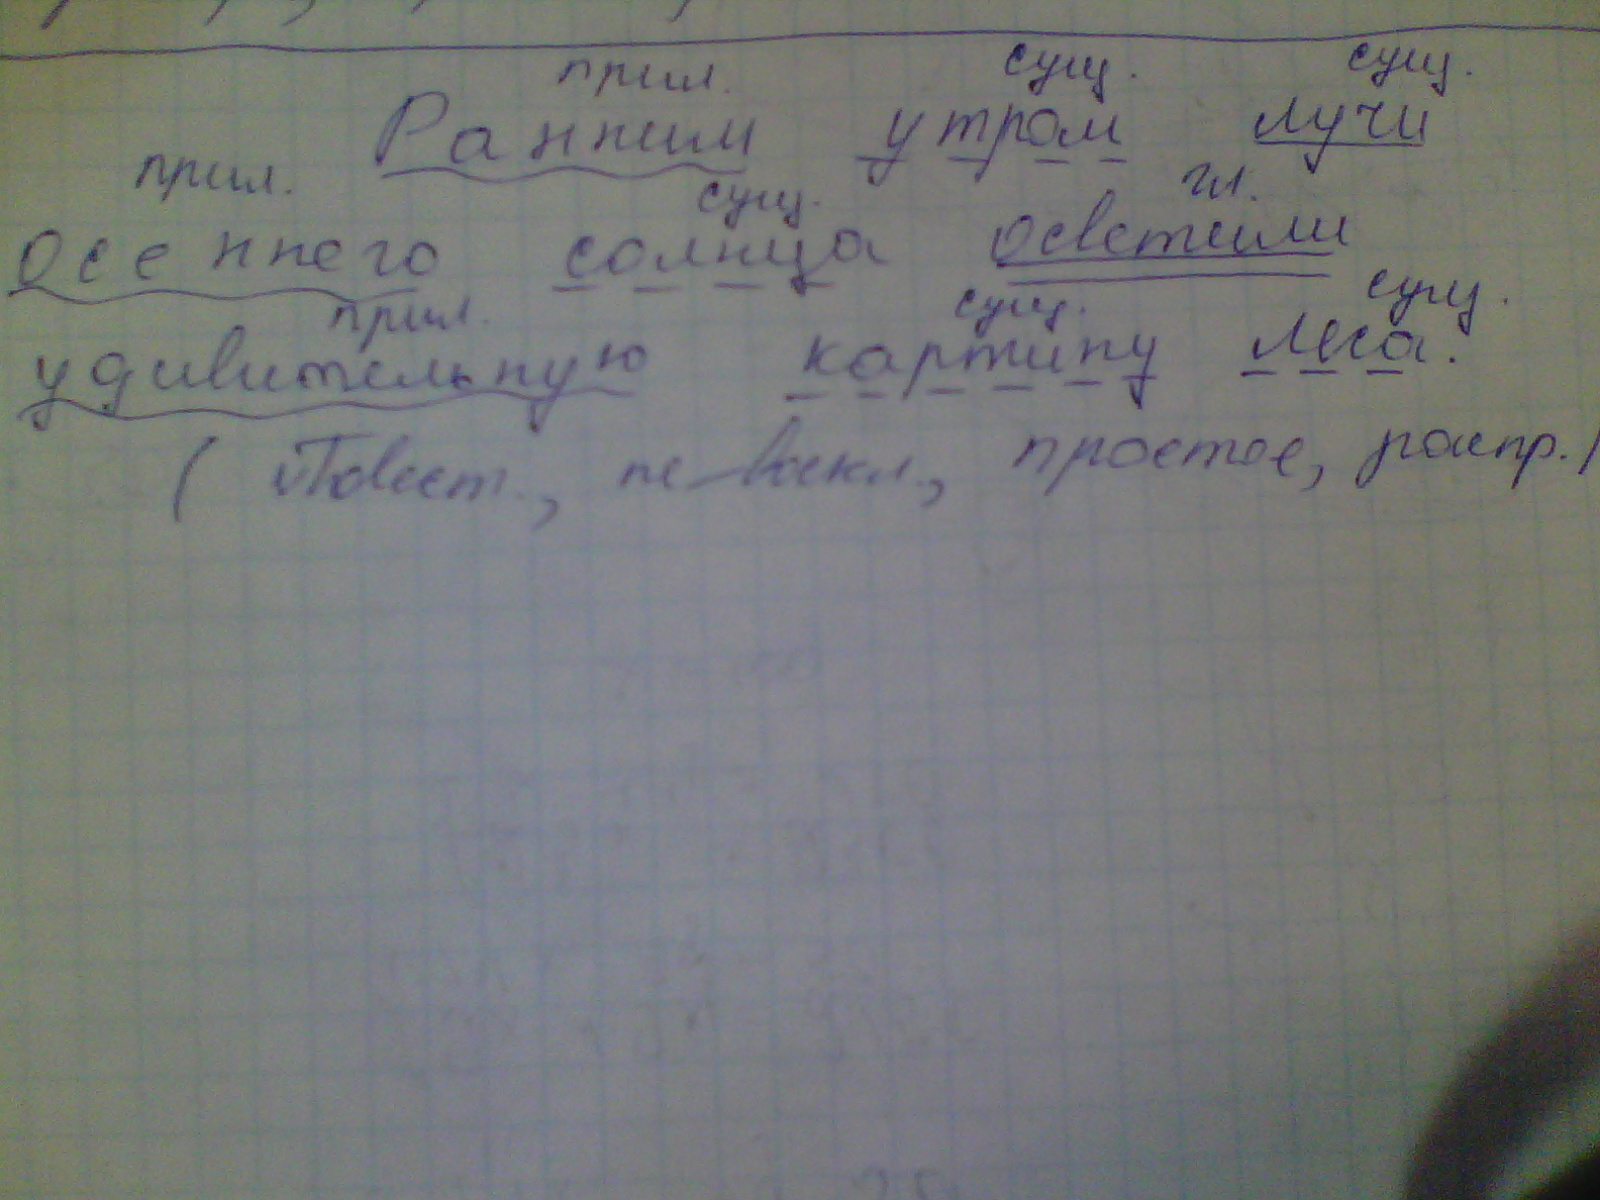 прил. сущ. сущ.
Ранним утром лучи
прил. сущ. гл.
осеннего солнца осветили
прил. сущ. сущ.
удивительную картину леса.
(Повест., не воскл., простое, распр.)